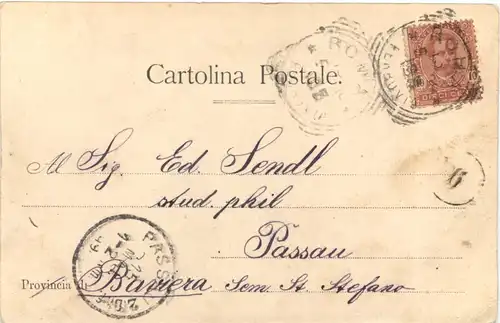 ROMA
Cartolina Postale.
Al Sig. Ed. Sendl
stud. phil
6
Passau
PASS
Provincia d Baviera Sem. St. Stefano